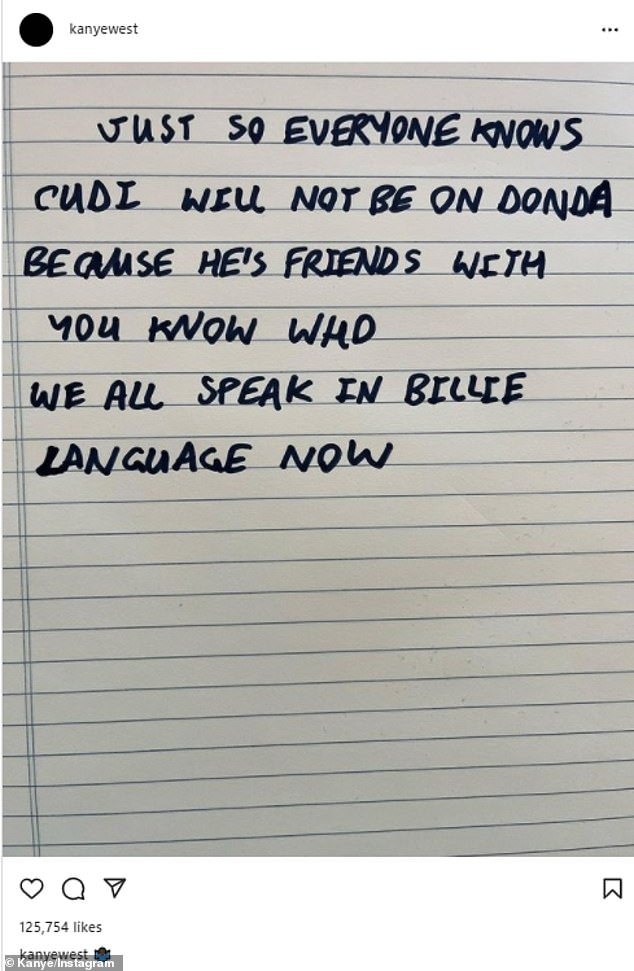 kanyewest
JUST SO EVERYONE KNOWS
CUDI WILL NOT BE ON DONDA
BECAUSE HE'S FRIENDS WITH
YOU KNOW WHO
WE ALL SPEAK IN BILLIE
LANGUAGE NOW
125,754 likes
kanyewest
© Kanye/Instagram